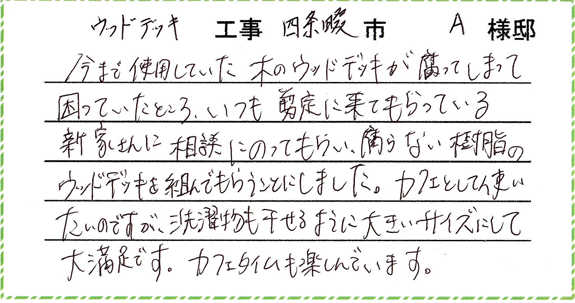 ウッドデッキ 工事 四条畷 市 A 様邸
今まで使用していた木のウッドデッキが腐ってしまって
困っていたところ、いつも剪定に来てもらっている
新家さんに相談にのってもらい、腐らない樹脂の
ウッドデッキを組んでもらうことにしました。カフェとして使い
たいのですが、洗濯物も干せるように大きいサイズにして
大満足です。カフェタイムも楽しんでいます。